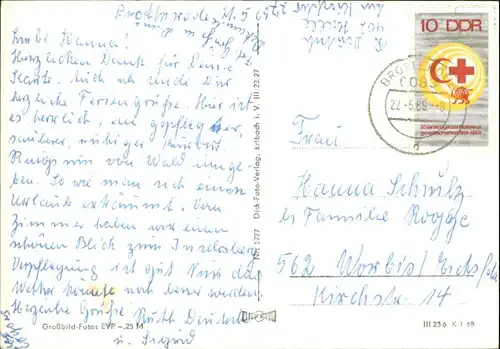 Brotterode, 21.5.69
Liebe Hanna!
Herzlichen Dank für Deine
Karte. Auch ich sende Dir
herzliche Feriengrüße. Hier ist
es herrlich, ein gepflegter,
sauberer, ruhiger Kurort
Ringsum von Wald umge-
ben. So wie man sich einen
Urlaub erträumt. Vom
Zimmer haben wir einen
schönen Blick zum Inselsberg
Verpflegung ist gut. Nur das
Wetter könnte noch besser werden
Herzliche Grüße Ruth
u. Sigrid
Großbild-Fotos EVP -,25 M
Nr. 5727 Dick-Foto-Verlag, Erlbach i. V. III 23 27
10 DDR
22.-5.69.-8
Frau
Hanna Schulz
bei Familie
562 Worbis/Eichsf.
Kirchstr. 14
III 23 6 K 1 68